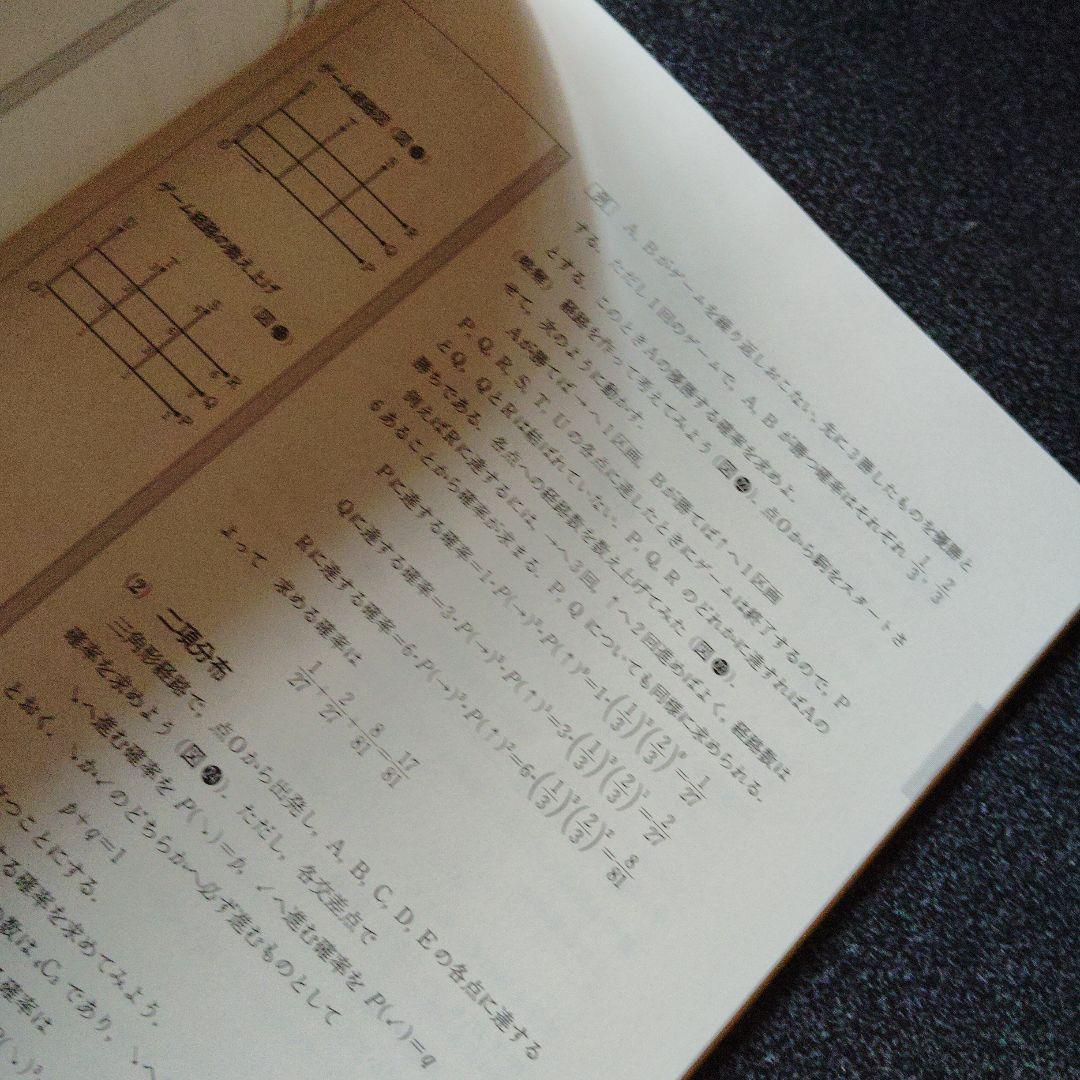 例 A, Bがゲームを繰り返しおこない, 先に3勝したものを優勝と
する. ただし1回のゲームで, A, Bが勝つ確率はそれぞれ 1/3, 2/3
とする. このときAの優勝する確率を求めよ.
経路を作って考えてみよう (図㉒). 点Oから駒をスタートさ
せて, 次のように動かす.
Aが勝てば→へ1区画, Bが勝てば↑へ1区画
P, Q, R, S, T, Uの各点に達したときにゲームは終了するので, P
とQ, QとRは結ばれていない. P, Q, Rのどれかに達すればAの
勝ちである. 各点への経路数を数え上げてみた (図㉓).
例えばRに達するには, →へ3回, ↑へ2回進めばよく, 経路数は
6あることから確率が求まる. P, Qについても同様に求められる.
Pに達する確率=1・P(→)³・P(↑)⁰=1・(1/3)³(2/3)⁰=1/27
Qに達する確率=3・P(→)³・P(↑)¹=3・(1/3)³(2/3)¹=2/27
Rに達する確率=6・P(→)³・P(↑)²=6・(1/3)³(2/3)²=8/81
よって 求める確率は
1/27+2/27+8/81=17/81
(2) 二項分布
三角形経路で, 点Oから出発し, A, B, C, D, Eの各点に達する
確率を求めよう (図㉔). ただし, 各交差点で
↘へ進む確率を P(↘)=p, ↙へ進む確率を P(↙)=q
とおく. ↘か↙のどちらかへ必ず進むものとして
p+q=1
つことにする.
る確率を求めてみよう.
数は ₄C₃ であり, ↘へ
確率は
P(↘)³
ゲーム経路図 (図㉒)
O
P
Q
R
S
T
U
ゲーム経路の数え上げ (図㉓)
O
P
Q
R
S
T
U